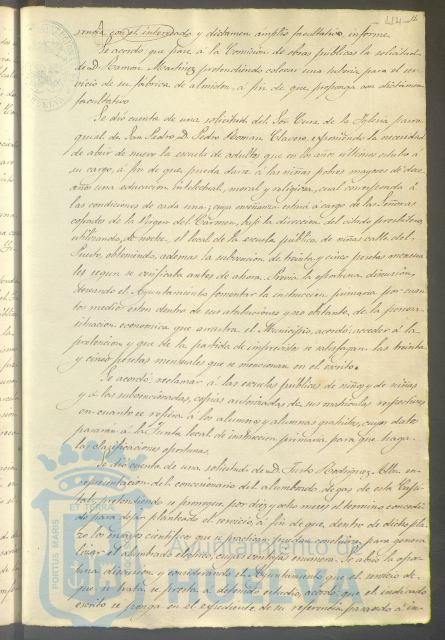 con el interesado y dictamen amplio facultativo, informe.
Se acordó, que pase á la Comisión de obras públicas la solicitud
de D. Ramon Martinez pretendiendo colocar una tubería para el ser-
vicio de su fábrica de almidon, á fin de que proponga con dictámen
facultativo.
Se dió cuenta de una solicitud del Sor. Cura de la Iglesia parro-
quial de San Pedro D. Pedro Roman Clavero, exponiendo la necesidad
de abrir de nuevo la escuela de adultas, que en los años últimos estubo á
su cargo, á fin de que, pueda darse á las niñas pobres mayores de doce
años una educacion intelectual, moral y religiosa, cual corresponda á
las condiciones de cada una; cuya enseñanza estará á cargo de las Señoras
cofrades de la Virgen del Cármen, bajo la direccion del citado presbítero,
utilizando, de noche, el local de la escuela pública de niñas calle del
Puerto, obteniendo, ademas la subvencion de treinta y cinco pesetas mensua-
les segun se verificaba antes de ahora. Prévia la oportuna discusion,
deseando el Ayuntamiento fomentar la instruccion primaria por cuan-
tos medios esten dentro de sus atribuciones y no obstante, de la penosa
situacion económica que arrastra el Municipio, acordó: acceder á la
pretension y que de la partida de imprevistos se satisfagan las treinta
y cinco pesetas mensuales que se mencionan en el escrito.
Se acordó, reclamar á las escuelas públicas de niños y de niñas
y á las subvencionadas, copias autorizadas de sus matrículas respectivas
en cuanto se refiera á los alumnos y alumnas gratuitos, cuyos datos
pasarán á la Junta local de instruccion primaria, para que haga
las clasificaciones oportunas.
Se dió cuenta de una solicitud de D. Justo Rodriguez Alba en
representacion del concesionario del alumbrado de gas de esta Capi-
tal, pretendiendo se prorrogue por diez y ocho meses el termino concedi-
do para dejar planteado el servicio, á fin de que, dentro de dicho pla-
zo los ensayos científicos que se practican puedan concluirse, para genera-
lizar el alumbrado eléctrico, cuyas ventajas enumera. Se abrió la opor-
tuna discusion y considerando el Ayuntamiento que el servicio de
que se trata, se presta á detenido estudio, acordó: que el indicado
escrito se ponga en el expediente de su referencia, pasando á in-
Ayuntamiento de
HUELVA
PORTUS MARIS
ET TERRAE